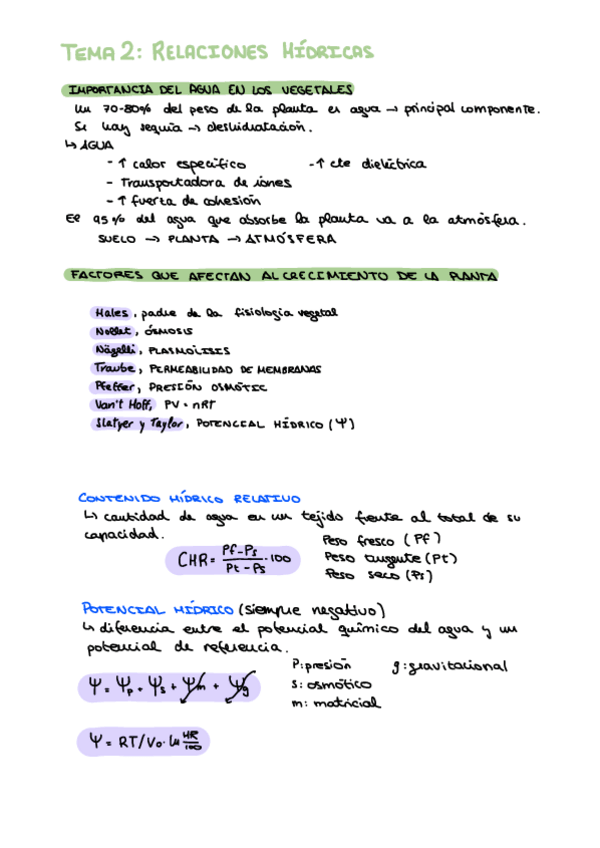 TEMA 2: RELACIONES HÍDRICAS
IMPORTANCIA DEL AGUA EN LOS VEGETALES
Un 70-80% del peso de la planta es agua → principal componente.
Si hay sequía → deshidratación.
↳ AGUA
- ↑ calor específico - ↑ cte dieléctrica
- Transportadora de iones
- ↑ fuerza de cohesión
El 95% del agua que absorbe la planta va a la atmósfera.
SUELO → PLANTA → ATMÓSFERA
FACTORES QUE AFECTAN AL CRECIMIENTO DE LA PLANTA
Hales, padre de la fisiología vegetal
Nollet, ÓSMOSIS
Nägelli, PLASMÓLISIS
Traube, PERMEABILIDAD DE MEMBRANAS
Pfeffer, PRESIÓN OSMÓTIC
Van't Hoff, PV = nRT
Slatyer y Taylor, POTENCIAL HÍDRICO (Ψ)
CONTENIDO HÍDRICO RELATIVO
↳ cantidad de agua en un tejido frente al total de su
capacidad.
CHR = Pf-Ps / Pt-Ps · 100
Peso fresco (Pf)
Peso turgente (Pt)
Peso seco (Ps)
POTENCIAL HÍDRICO (siempre negativo)
↳ diferencia entre el potencial químico del agua y un
potencial de referencia.
P: presión g: gravitacional
s: osmótico
m: matricial
Ψ = Ψp + Ψs + Ψm + Ψg
Ψ = RT/V₀ · ln HR/100